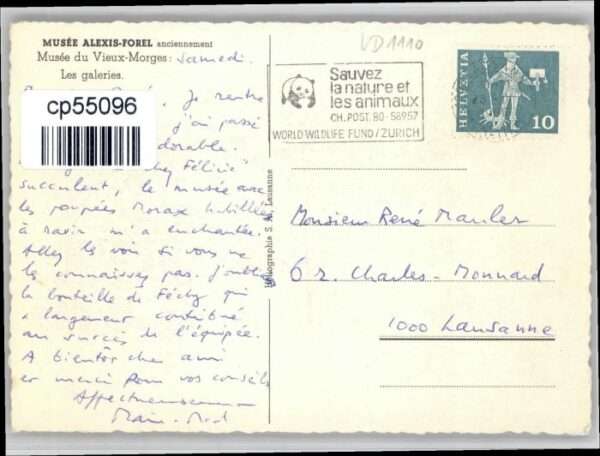 MUSÉE ALEXIS-FOREL anciennement
Musée du Vieux-Morges: samedi.
Les galeries.
Je rentre
cp55096
j'ai passé
dorable.
chez Félicie"
succulent, le musée avec
les poupées Morax habillées
à ravir m'a enchantée.
Allez le voir si vous ne
le connaissez pas. J'oublie
la bouteille de Féchy qui
a largement contribué
au succès de l'équipée.
A bientôt cher ami
et merci pour vos conseils
Affectueusement
VD1110
Sauvez
la nature et
les animaux
CH.POST. 80-58957
WORLD WILDLIFE FUND/ZURICH
HELVETIA
10
Héliographia S. A., Lausanne
Monsieur René Mauler
6 r. Charles-Monnard
1000 Lausanne